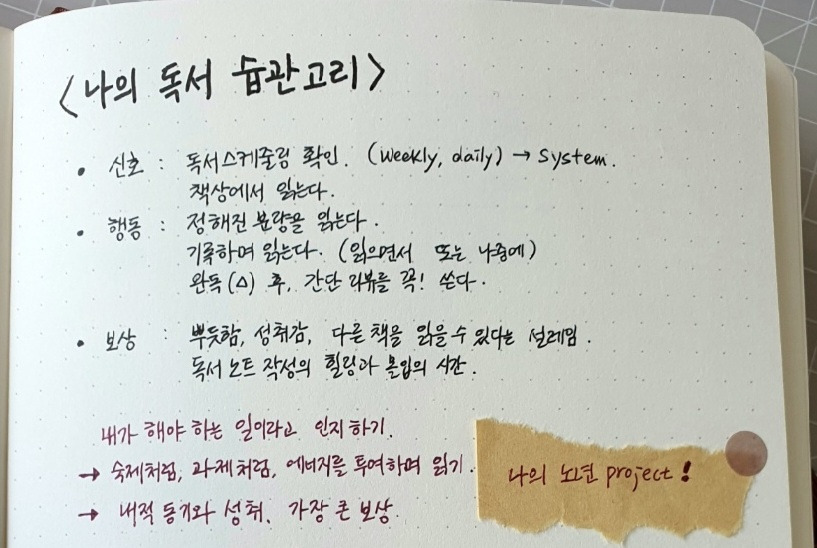 <나의 독서 습관고리>
• 신호 : 독서스케줄링 확인. (weekly, daily) → system.
책상에서 읽는다.
• 행동 : 정해진 분량을 읽는다.
기록하며 읽는다. (읽으면서 또는 나중에)
완독(△) 후, 간단 리뷰를 꼭! 쓴다.
• 보상 : 뿌듯함, 성취감, 다른 책을 읽을 수 있다는 설레임.
독서 노트 작성의 힐링과 몰입의 시간.
내가 해야 하는 일이라고 인지하기.
→ 숙제처럼, 과제처럼, 에너지를 투여하며 읽기.
→ 내적 동기와 성취, 가장 큰 보상.
나의 노년 project!